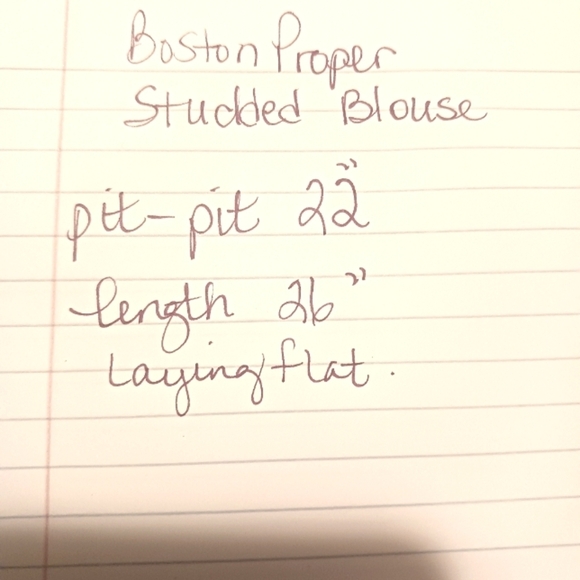 Boston Proper
Studded Blouse
pit-pit 22"
length 26"
Laying flat.